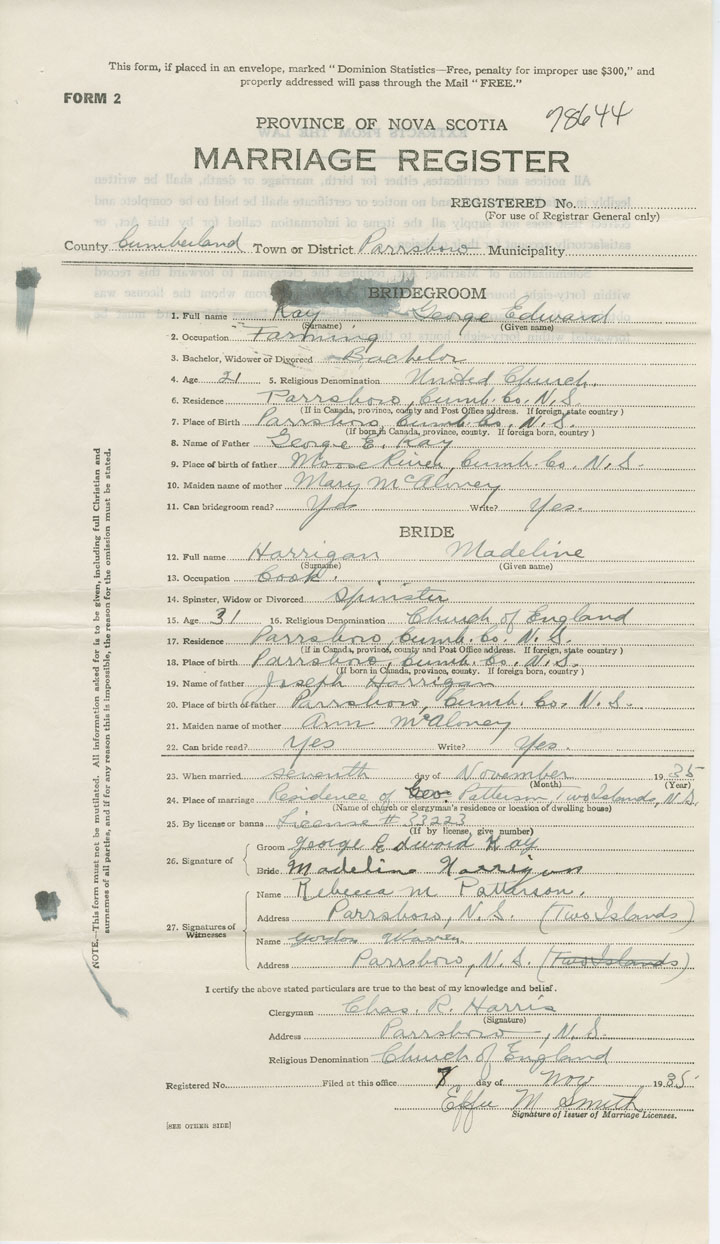 This form, if placed in an envelope, marked "Dominion Statistics—Free, penalty for improper use $300," and
properly addressed will pass through the Mail "FREE."
FORM 2
PROVINCE OF NOVA SCOTIA 78644
MARRIAGE REGISTER
REGISTERED No.
(For use of Registrar General only)
County Cumberland Town or District Parrsboro Municipality
BRIDEGROOM
1. Full name Kay George Edward
(Surname) (Given name)
2. Occupation Farming
3. Bachelor, Widower or Divorced Bachelor
4. Age 21 5. Religious Denomination United Church.
6. Residence Parrsboro, Cumb. Co. N.S.
(If in Canada, province, county and Post Office address. If foreign, state country)
7. Place of Birth Parrsboro, Cumb. Co. N.S.
(If born in Canada, province, county. If foreign born, country)
8. Name of Father George E. Kay
9. Place of birth of father Moose River, Cumb. Co. N.S.
10. Maiden name of mother Mary McAloney
11. Can bridegroom read? Yes Write? Yes.
BRIDE
12. Full name Harrigan Madeline
(Surname) (Given name)
13. Occupation Cook.
14. Spinster, Widow or Divorced Spinster
15. Age 31 16. Religious Denomination Church of England
17. Residence Parrsboro, Cumb. Co. N.S.
(If in Canada, province, county and Post Office address. If foreign, state country)
18. Place of birth Parrsboro, Cumb. Co. N.S.
(If born in Canada, province, county. If foreign born, country)
19. Name of father Joseph Harrigan
20. Place of birth of father Parrsboro, Cumb. Co. N.S.
21. Maiden name of mother Ann McAloney
22. Can bride read? Yes Write? Yes.
23. When married seventh day of November 1935
(Month) (Year)
24. Place of marriage Residence of Geo. Patterson, Two Islands, N.S.
(Name of church or clergyman's residence or location of dwelling house)
25. By license or banns License # 33223
(If by license, give number)
26. Signature of
Groom George Edward Kay
Bride Madeline Harrigan
27. Signatures of Witnesses
Name Rebecca M Patterson.
Address Parrsboro, N.S. (Two Islands)
Name Gordon
Address Parrsboro, N.S. (Two Islands)
I certify the above stated particulars are true to the best of my knowledge and belief.
Clergyman Chas. R. Harris
(Signature)
Address Parrsboro, N.S.
Religious Denomination Church of England
Registered No. Filed at this office 8 day of Nov 1935
Effie M Smith
Signature of Issuer of Marriage Licenses.
[SEE OTHER SIDE]
NOTE.—This form must not be mutilated. All information asked for is to be given, including full Christian and
surnames of all parties, and if for any reason this is impossible, the reason for the omission must be stated.